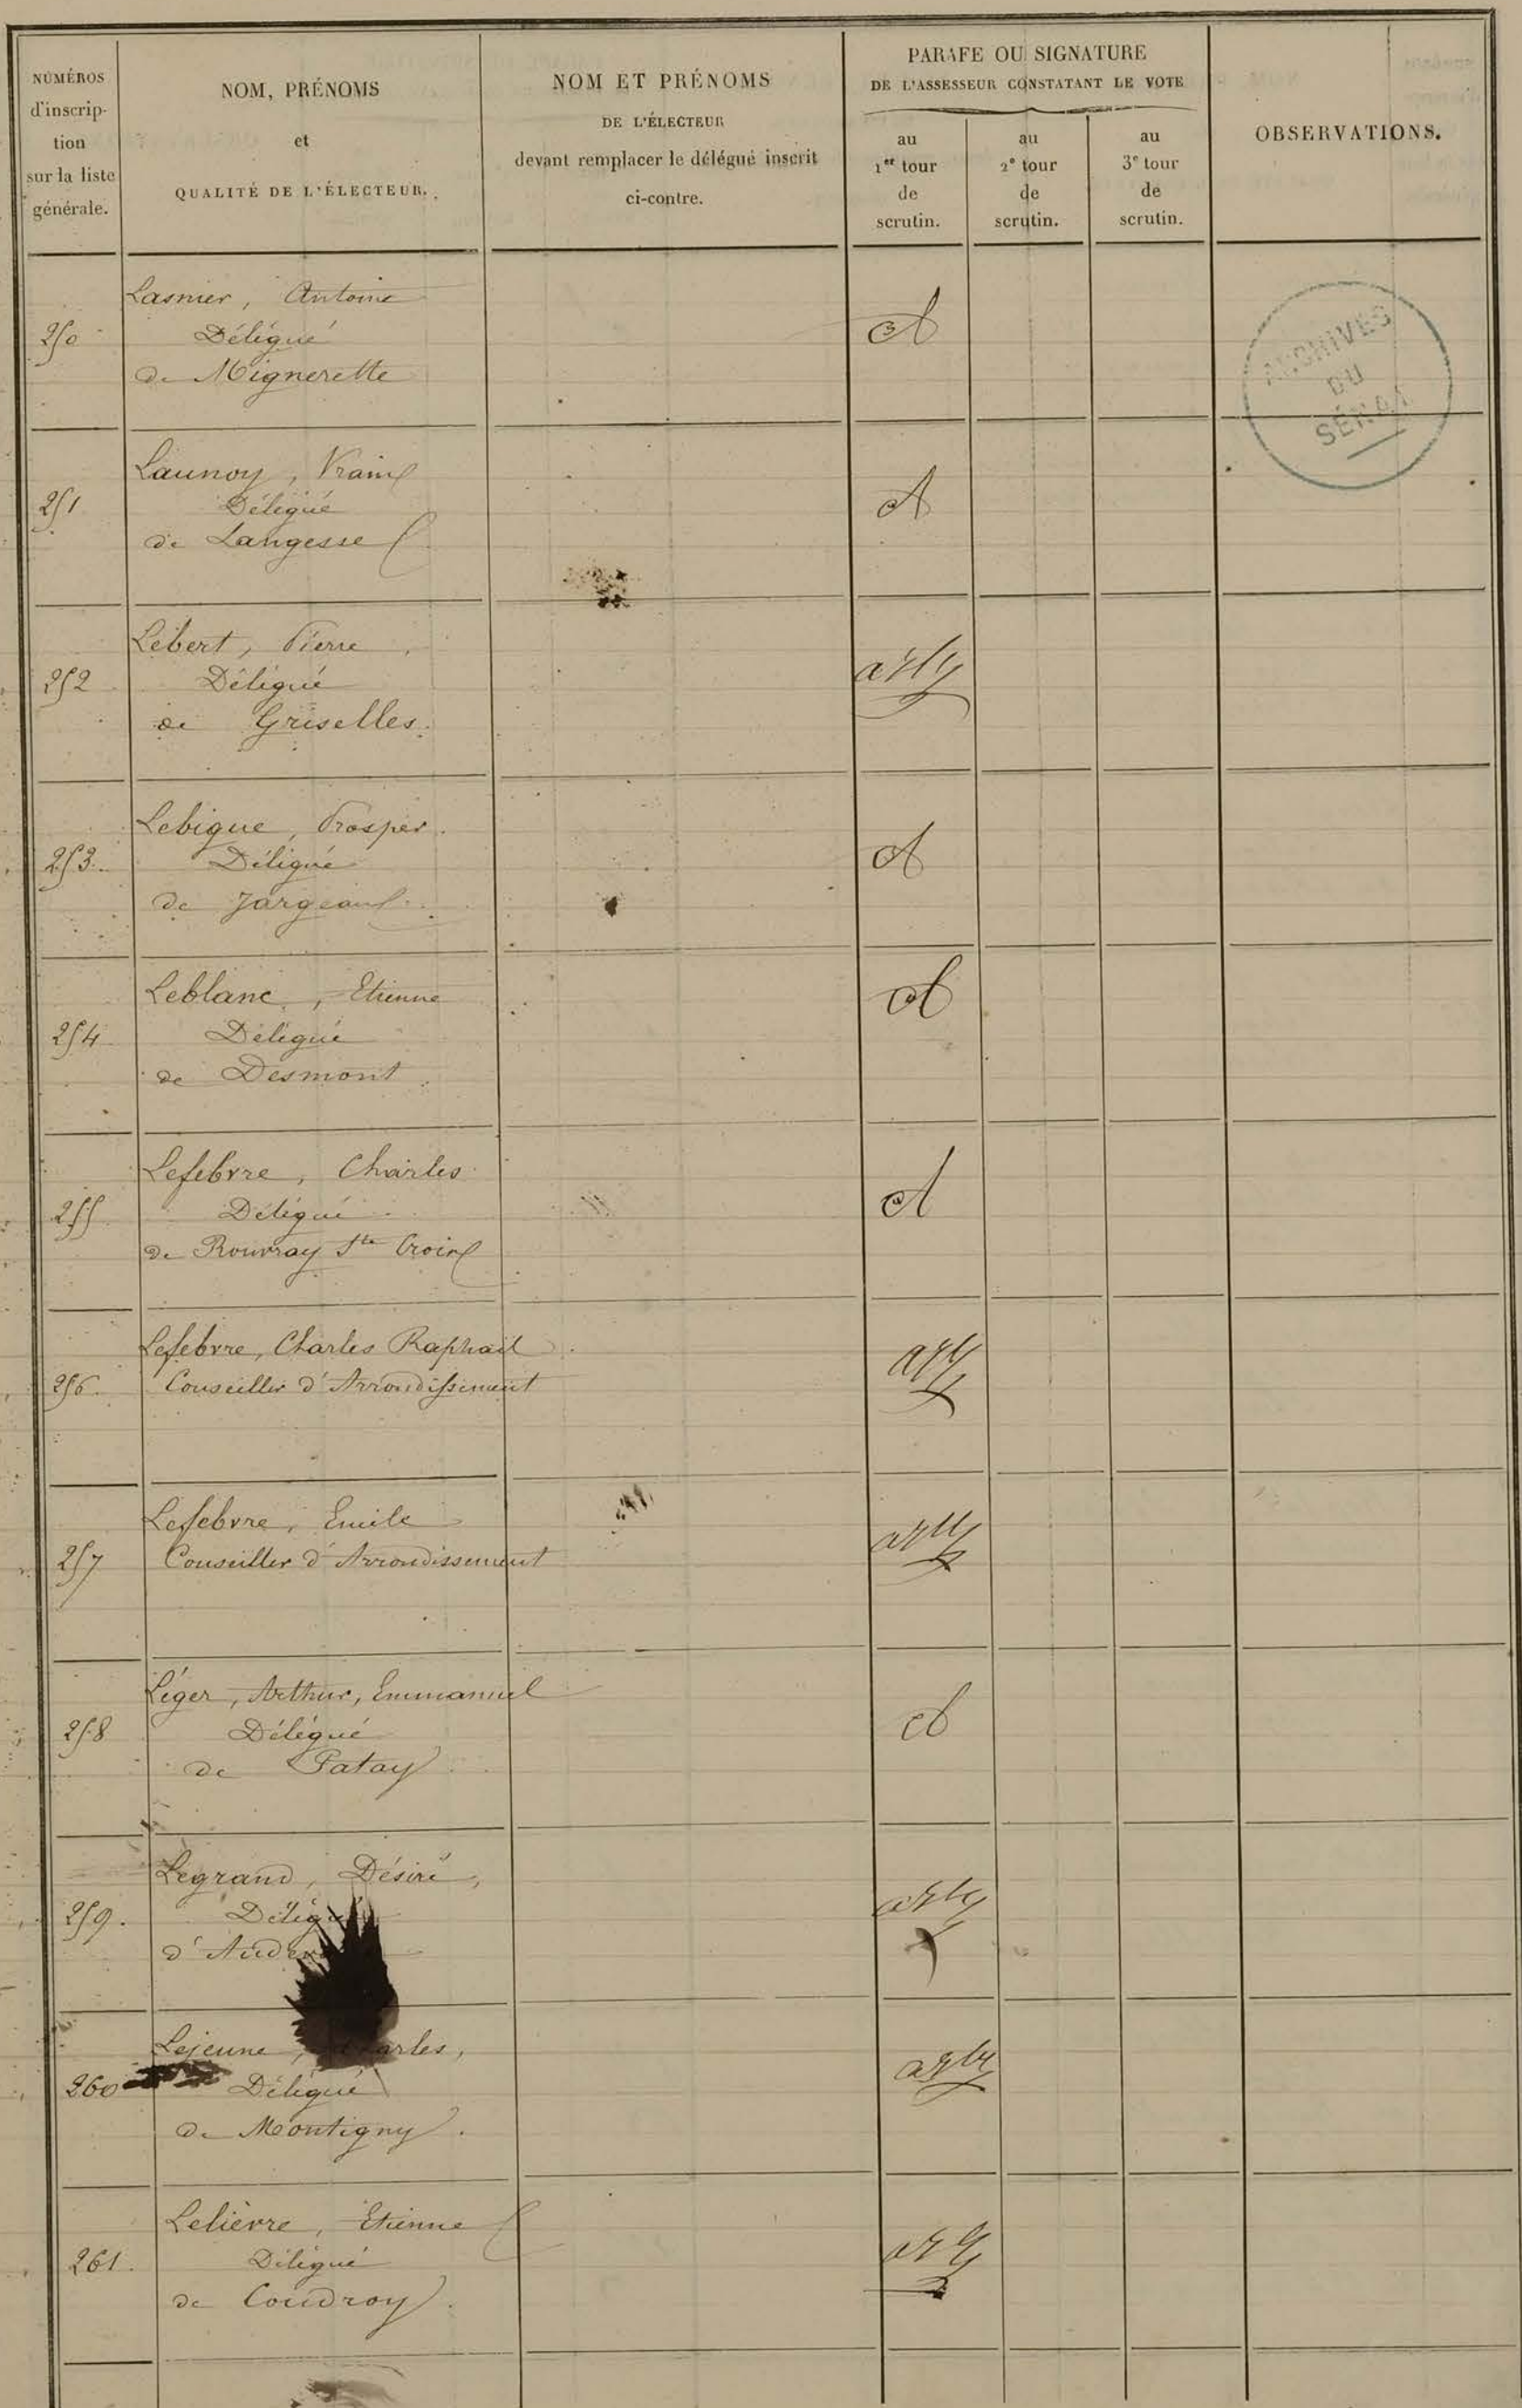 NUMÉROS
d'inscrip-
tion
sur la liste
générale.
NOM, PRÉNOMS
et
QUALITÉ DE L'ÉLECTEUR.
NOM ET PRÉNOMS
DE L'ÉLECTEUR
devant remplacer le délégué inscrit
ci-contre.
PARAFE OU SIGNATURE
DE L'ASSESSEUR CONSTATANT LE VOTE
au
1er tour
de
scrutin.
au
2e tour
de
scrutin.
au
3e tour
de
scrutin.
OBSERVATIONS.
ARCHIVES
DU
SÉNAT
250
Lasnier, Antoine
Délégué
de Mignerette
251
Launoy, Vrain
Délégué
de Langesse
252
Lebert, Pierre
Délégué
de Griselles.
253.
Lebigue, Prosper.
Délégué
de Jargeau
254
Leblanc, Etienne
Délégué
de Desmont
255
Lefebvre, Charles
Délégué
de Rouvray Ste Croix
256.
Lefebvre, Charles Raphaël
Conseiller d'Arrondissement
257
Lefebvre, Emile
Conseiller d'Arrondissement
258
Léger, Arthur, Emmanuel
Délégué
de Patay
259.
Legrand, Désiré,
Délégué
260
Lejeune, Charles,
Délégué
de Montigny.
261.
Lelièvre, Etienne
Délégué
de Coudroy.